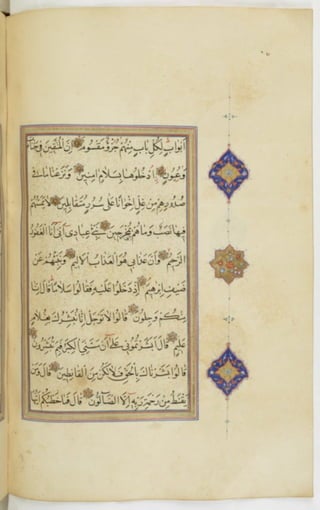 ابواب لكل باب منهم جزؤ مقسوم ان المتقين في جنات
وعيون ادخلوها بسلام امنين ونزعنا ما في
صدورهم من غل اخوانا على سرر متقابلين لا يمسهم
فيها نصب وما هم منها بمخرجين نبئ عبادي اني انا الغفور
الرحيم وان عذابي هو العذاب الاليم ونبئهم عن
ضيف ابرهيم اذ دخلوا عليه فقالوا سلاما قال انا
منكم وجلون قالوا لا توجل انا نبشرك بغلام
عليم قال ابشرتموني على ان مسني الكبر فبم تبشرون
قالوا بشرناك بالحق فلا تكن من القانطين قال ومن
يقنط من رحمة ربه الا الضالون قال فما خطبكم ايها